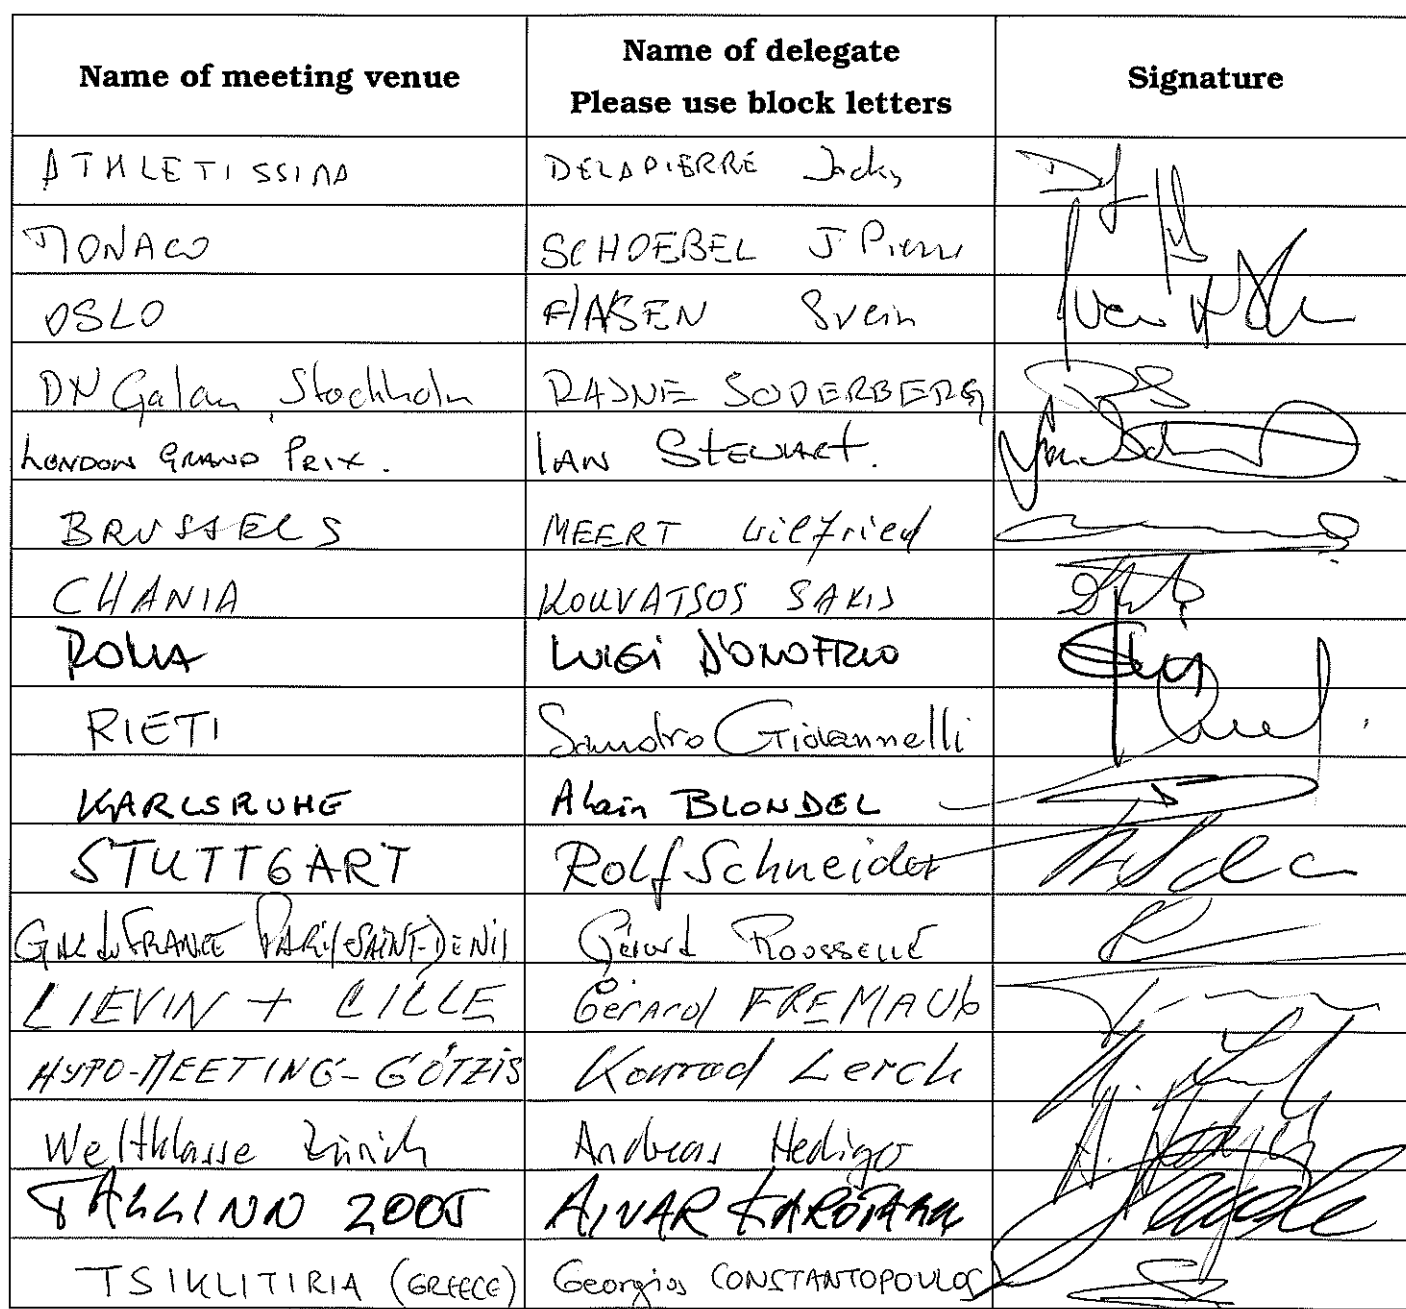 Name of meeting venue
Name of delegate
Please use block letters
Signature
ATHLETISSIMA DELAPIERRE Jacky
MONACO SCHOEBEL J Pierre
OSLO HANSEN Svein
DN Galan Stockholm RAJNE SODERBERG
LONDON GRAND PRIX. IAN STEWART.
BRUSSELS MEERT Wilfried
CHANIA KOUVATSOS SAKIS
ROMA LUIGI D'ONOFRIO
RIETI Sandro Giovannelli
KARLSRUHE Alain BLONDEL
STUTTGART Rolf Schneider
FRANCE PARIS SAINT-DENIS Gérard ROUSSELLE
LIEVIN + LILLE Gérard FREMAUX
HYPO-MEETING-GÖTZIS Konrad Lerch
Weltklasse Zürich Andreas Hediger
TALLINN 2005 AIVAR
TSIKLITIRIA (GREECE) Georgios CONSTANTOPOULOS